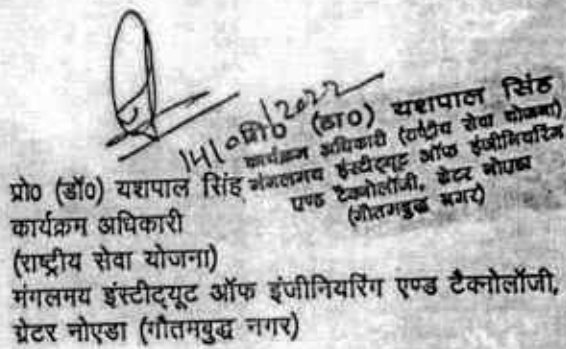 प्रो० (डा०) यशपाल सिंह
कार्यक्रम अधिकारी (राष्ट्रीय सेवा योजना)
मंगलमय इंस्टीट्यूट ऑफ इंजीनियरिंग
एण्ड टैक्नोलॉजी, ग्रेटर नोएडा
(गौतमबुद्ध नगर)
प्रो० (डॉ०) यशपाल सिंह
कार्यक्रम अधिकारी
(राष्ट्रीय सेवा योजना)
मंगलमय इंस्टीट्यूट ऑफ इंजीनियरिंग एण्ड टैक्नोलॉजी,
ग्रेटर नोएडा (गौतमबुद्ध नगर)